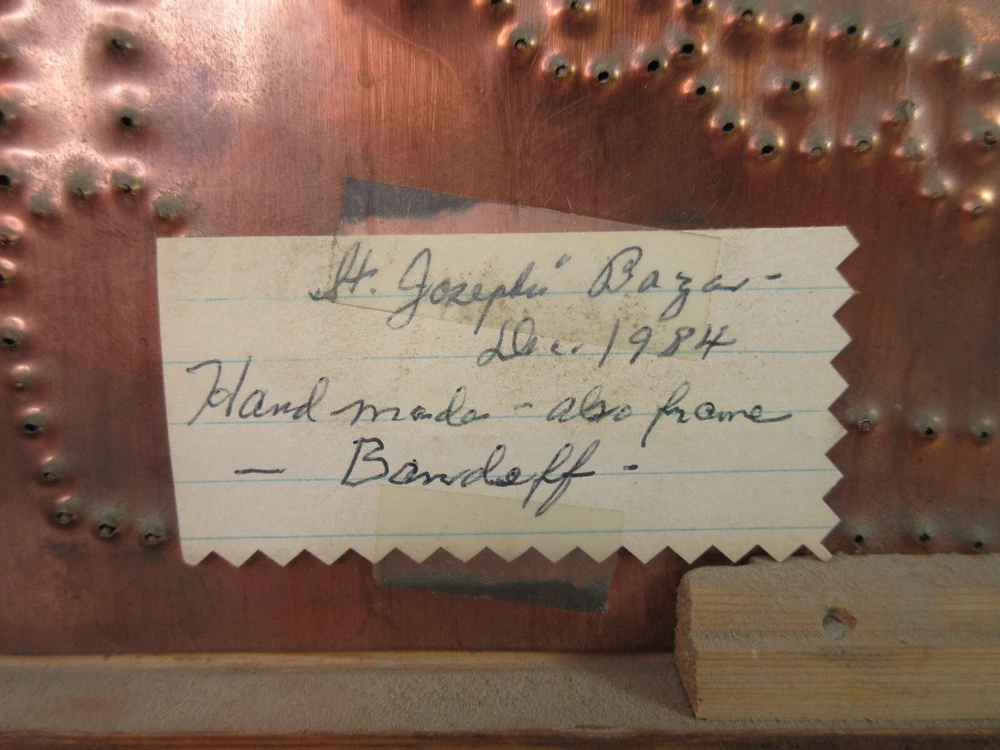 St. Josephs" Bazar -
Dec. 1984
Hand made - also frame
— Bandoff -